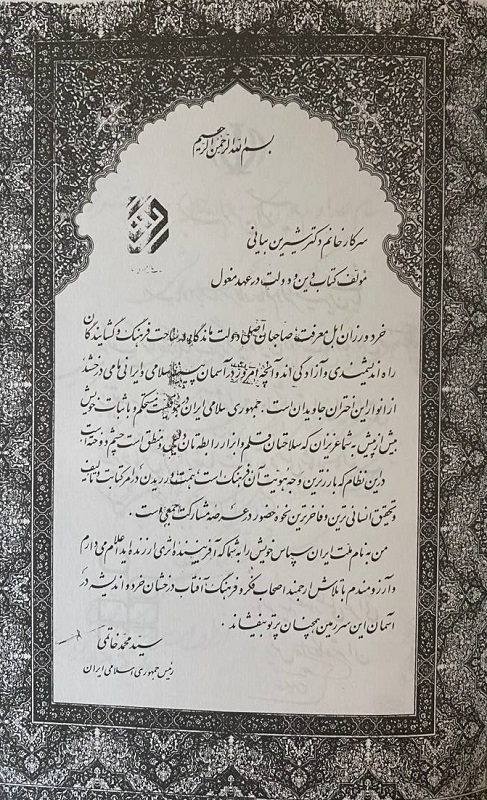 بسم الله الرحمن الرحیم
سرکار خانم دکتر شیرین بیانی
مؤلف کتاب دین و دولت در عهد مغول
خردورزان اهل معرفت، صاحبان اصلی دولت ماندگار ساحت فرهنگ و گشایندگان
راه اندیشمندی و آزادگی اند و آنچه امروز در آسمان سپهر اسلامی و ایرانی ما می درخشد
از انوار این اختران جاویدان است. جمهوری اسلامی ایران در موقعیت مستحکم و با ثبات خویش
بیش از پیش به شما عزیزان که سلاحتان قلم و ابزار رابطه تان و منطق است چشم دوخته است
در این نظام که بارزترین وجه هویت آن فرهنگ است، همت ورزیدن در امر کتابت، تألیف
و تحقیق انسانی ترین و فاخرترین نحوه حضور در عرصه مشارکت جمعی است.
من به نام ملت ایران سپاس خویش را به شما که آفریننده اثری ارزنده اید اعلام می دارم
و آرزومندم با تلاش ارجمند اصحاب فکر و فرهنگ، آفتاب درخشان خرد و اندیشه در
آسمان این سرزمین همچنان پرتو بیفشاند.
سید محمد خاتمی
رئیس جمهوری اسلامی ایران